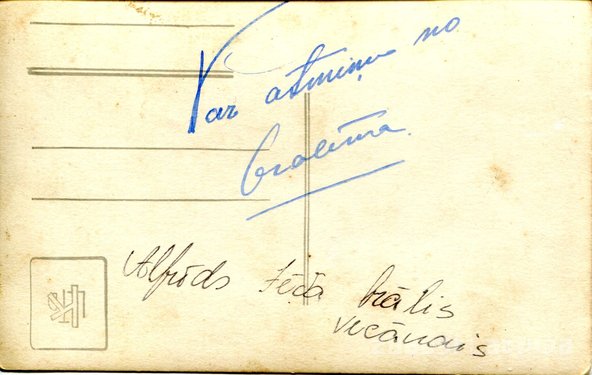 Par atmiņu no
brālēna.
Alfrēds tēča brālis
vecāvais